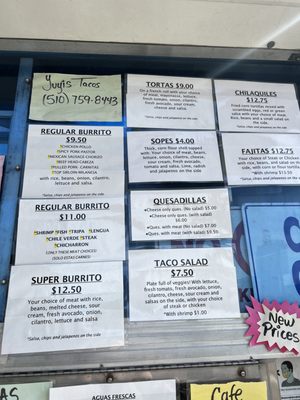 Yuyis Tacos
(510) 759-8443
REGULAR BURRITO
$9.50
*CHICKEN-POLLO
*SPICY PORK-PASTOR
*MEXICAN SAUSAGE-CHORIZO
*BEEF HEAD-CABEZA
*PULLED PORK-CARNITAS
*TOP SIRLOIN-MILANESA
With rice, beans, onions, cilantro,
lettuce and salsa
REGULAR BURRITO
$11.00
*SHRIMP *FISH *TRIPA *LENGUA
*CHILE VERDE *STEAK
*CHICHARRON
ONLY MEAT (ANY MEAT CHOICE)
(SOLO ESTAS CARNES)
SUPER BURRITO
$12.50
Your choice of meat with rice,
beans, melted cheese, sour
cream, fresh avocado, onion,
cilantro, lettuce and salsa
*Salsa, chips and jalapenos on the side
TORTAS $9.00
On a french roll with your choice
of meat, mayonnaise, lettuce,
fresh tomato, onion, cilantro,
fresh avocado, sour cream,
cheese and salsa
SOPES $4.00
Thick, corn flour shell topped
with: Your choice of meat, beans,
lettuce, onion, cilantro, cheese,
sour cream, fresh avocado, fresh
tomato and salsa
QUESADILLAS
*Cheese only ques. (No salad) $5.00
*Cheese only ques. (with salad)
$6.00
Ques. with meat (No salad) $7.00
Ques. with meat (W salad) $9.50
TACO SALAD
$7.50
Plate full of veggies! With lettuce,
fresh tomato, fresh avocado, onion,
cilantro, cheese, sour cream and
salsas on the side, with your choice
of steak or chicken
*With shrimp $1.00
CHILAQUILES
$12.75
Fried corn tortillas mixed with
scrambled eggs, red or green
fresh avocado, sour cream
FAJITAS $12.75
Your choice of Steak or Chicken
with rice, beans and salad on
*Salsa, chips and jalapenos on the side
New
Prices
AGUAS FRESCAS
Cafe